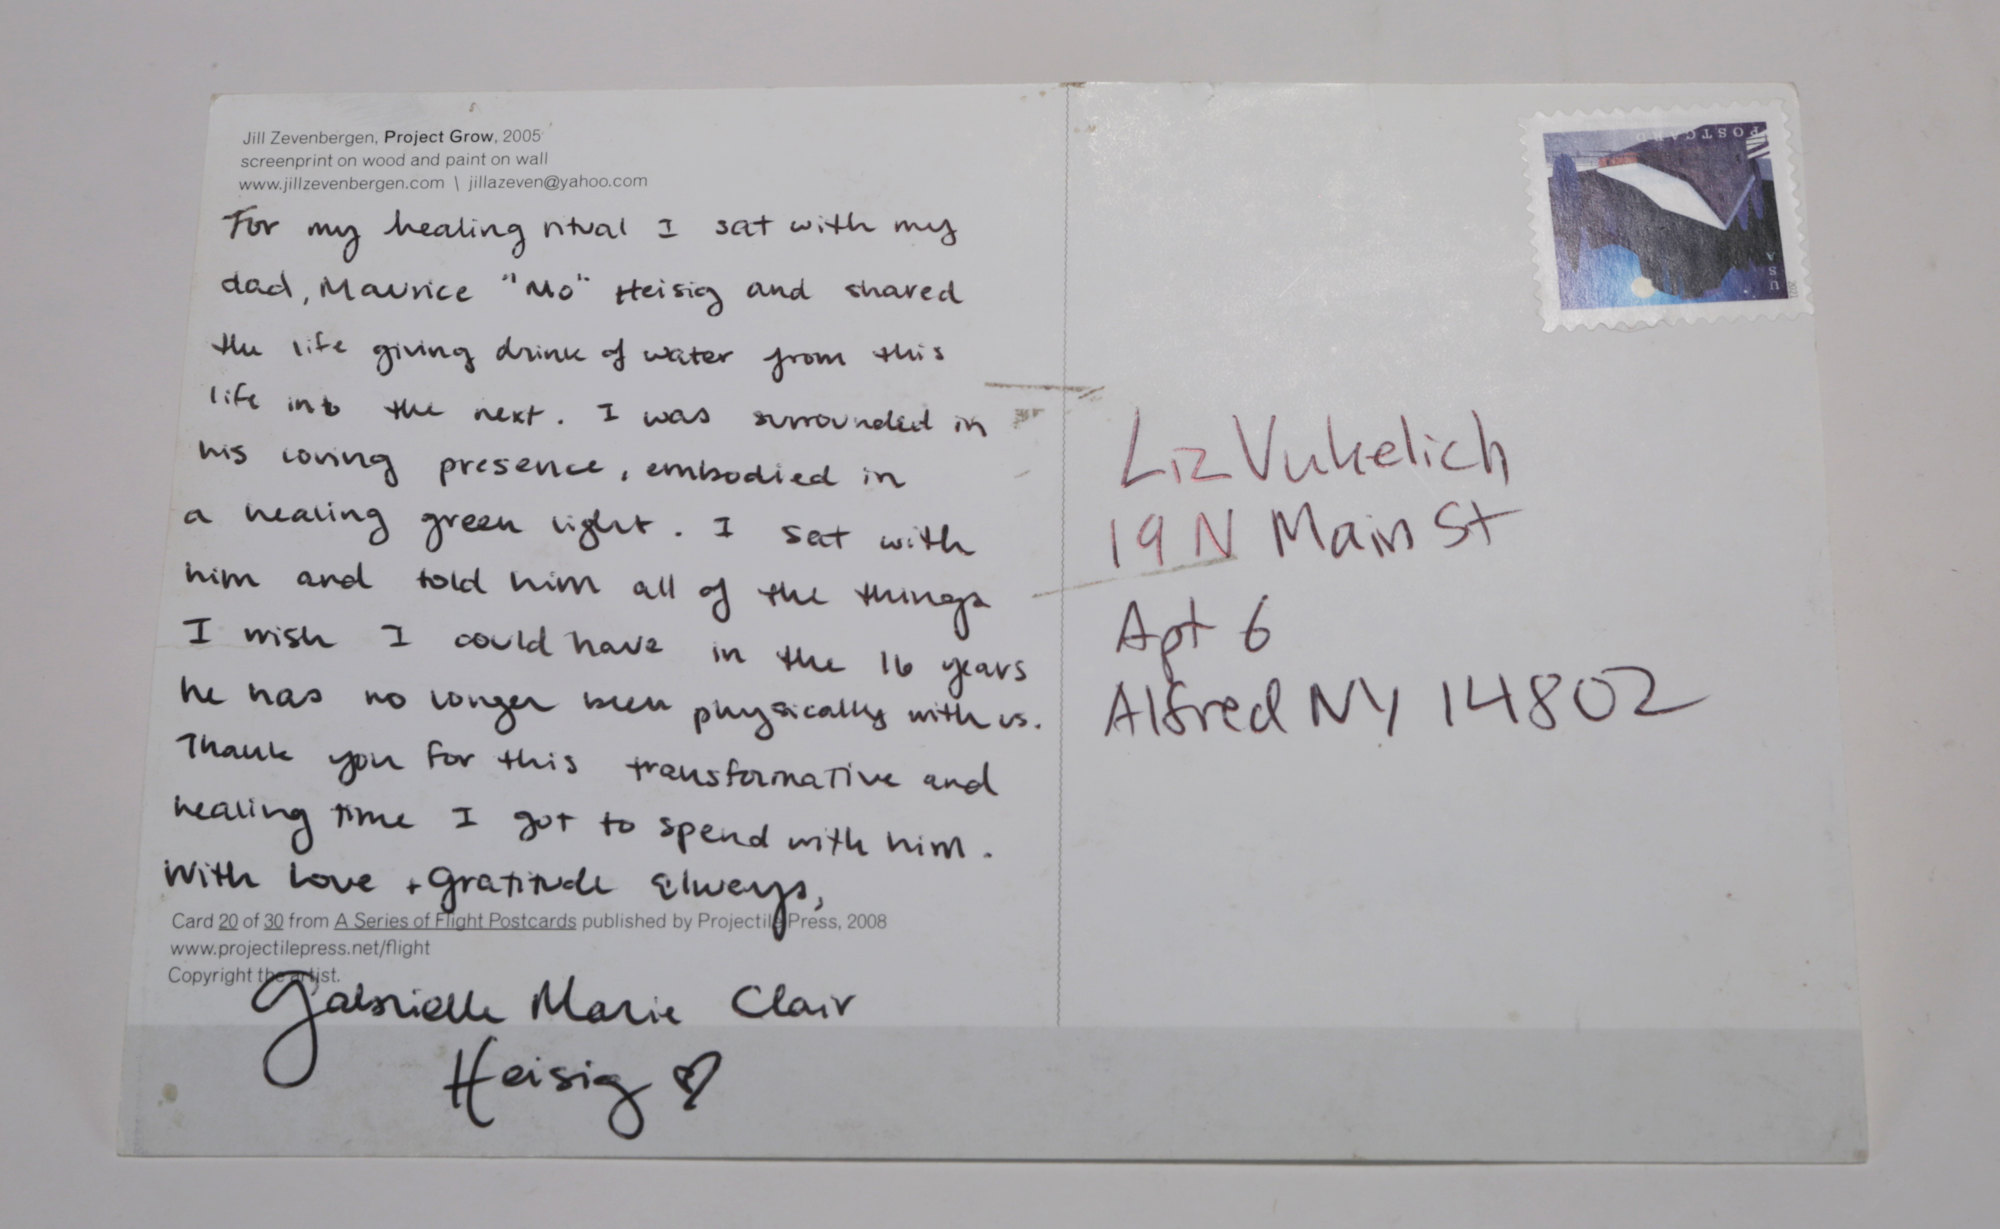 Jill Zevenbergen, Project Grow, 2005
screenprint on wood and paint on wall
www.jillzevenbergen.com \ jillazeven@yahoo.com
For my healing ritual I sat with my
dad, Maurice "Mo" Heisig and shared
the life giving drink of water from this
life into the next. I was surrounded in
his loving presence, embodied in
a healing green light. I sat with
him and told him all of the things
I wish I could have in the 16 years
he has no longer been physically with us.
Thank you for this transformative and
healing time I got to spend with him.
With Love + gratitude always,
Card 20 of 30 from A Series of Flight Postcards published by Projectile Press, 2008
www.projectilepress.net/flight
Copyright the artist.
Gabrielle Marie Clair
Heisig
POSTCARD
USA
Liz Vukelich
19 N Main St
Apt 6
Alfred NY 14802